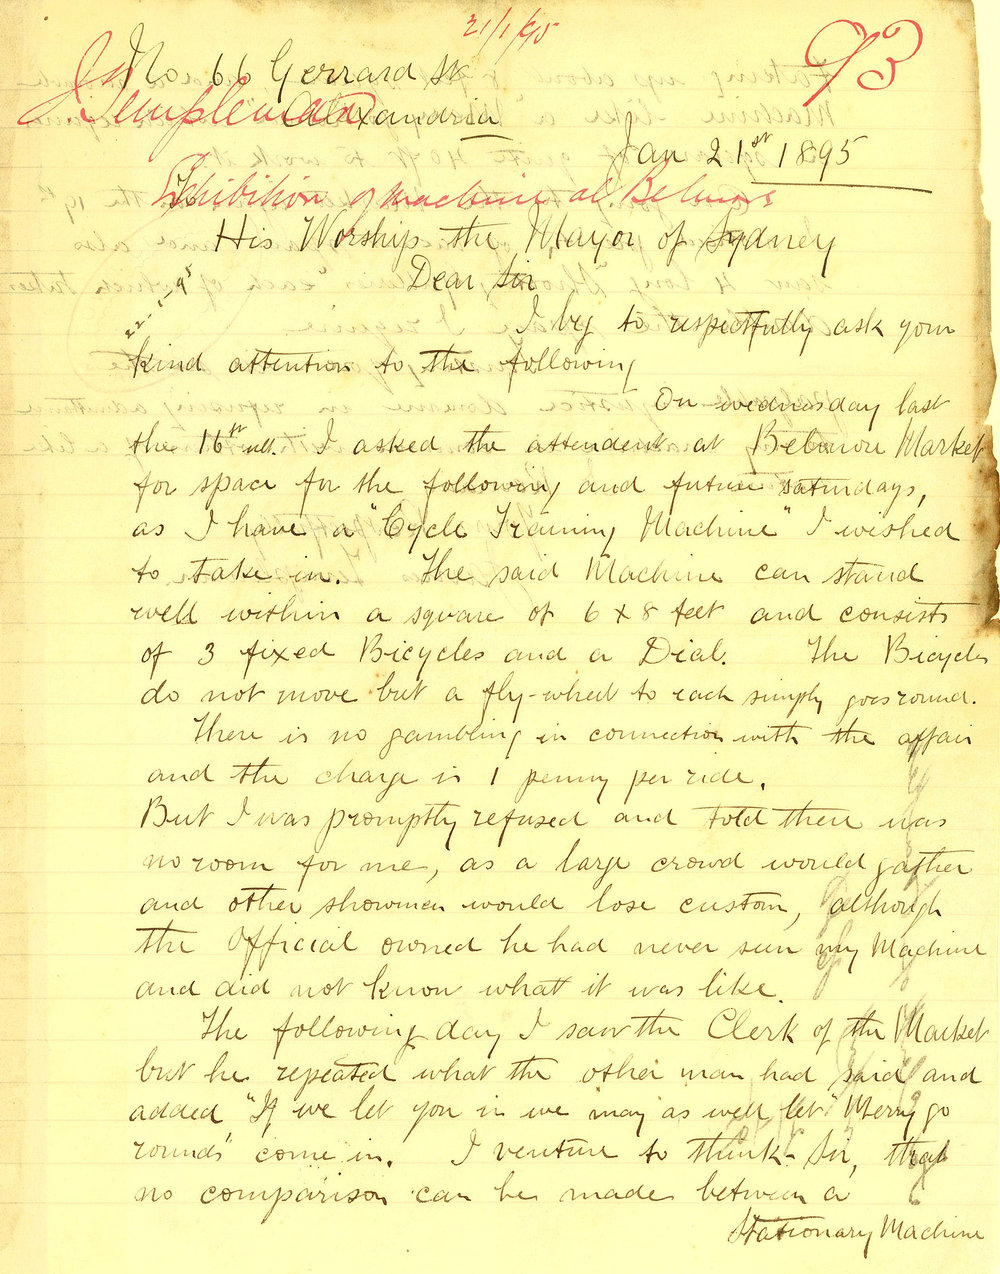 21/1/95
93
No 66 Gerrard St
Alexandria
Jas Templeman
Jan 21st 1895
Exhibition of machine at Belmore
To
His Worship the Mayor of Sydney
Dear Sir
22-1-95
I beg to respectfully ask your
kind attention to the following
On wednesday last
the 16th ult. I asked the attendent at Belmore Market
for space for the following and future saturdays,
as I have a "Cycle Training Machine" I wished
to take in. The said Machine can stand
well within a square of 6 x 8 feet and consists
of 3 fixed Bicycles and a Dial. The Bicycles
do not move but a fly-wheel to each simply goes round.
There is no gambling in connection with the affair
and the charge is 1 penny per ride.
But I was promptly refused and told there was
no room for me, as a large crowd would gather
and other showmen would lose custom, although
the Official owned he had never seen my Machine
and did not know what it was like.
The following day I saw the Clerk of the Market
but he repeated what the other man had said and
added "If we let you in we may as well let "Merry go
rounds" come in. I venture to think Sir, that
no comparison can be made between a
Stationary Machine